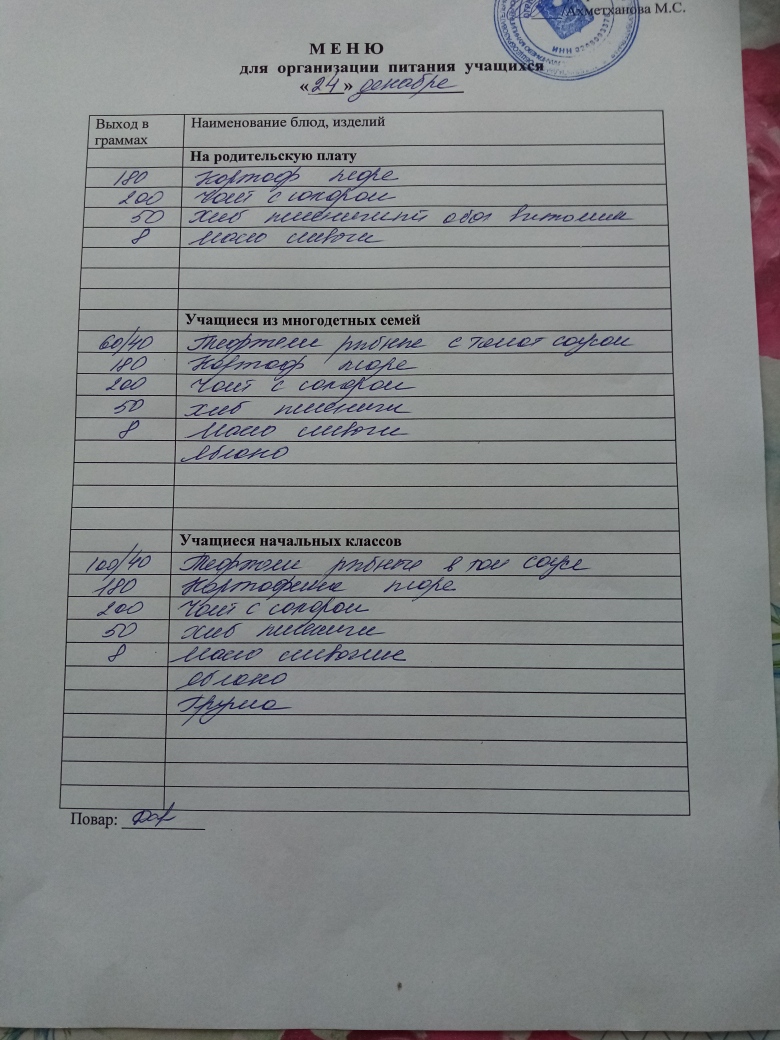 /Ахметханова М.С.
ИНН
М Е Н Ю
для организации питания учащихся
«24» декабре
Выход в граммах Наименование блюд, изделий
На родительскую плату
180 Картоф пюре
200 Чай с сахаром
50 Хлеб пшеничный обог витамин
8 Масло сливочн
Учащиеся из многодетных семей
60/40 Тефтели рыбные с томат соусом
180 Картоф пюре
200 Чай с сахаром
50 Хлеб пшеничн
8 Масло сливочн
Яблоко
Учащиеся начальных классов
100/40 Тефтели рыбные в том соусе
180 Картофельное пюре
200 Чай с сахаром
50 Хлеб пшеничн
8 Масло сливочное
Яблоко
Груша
Повар: